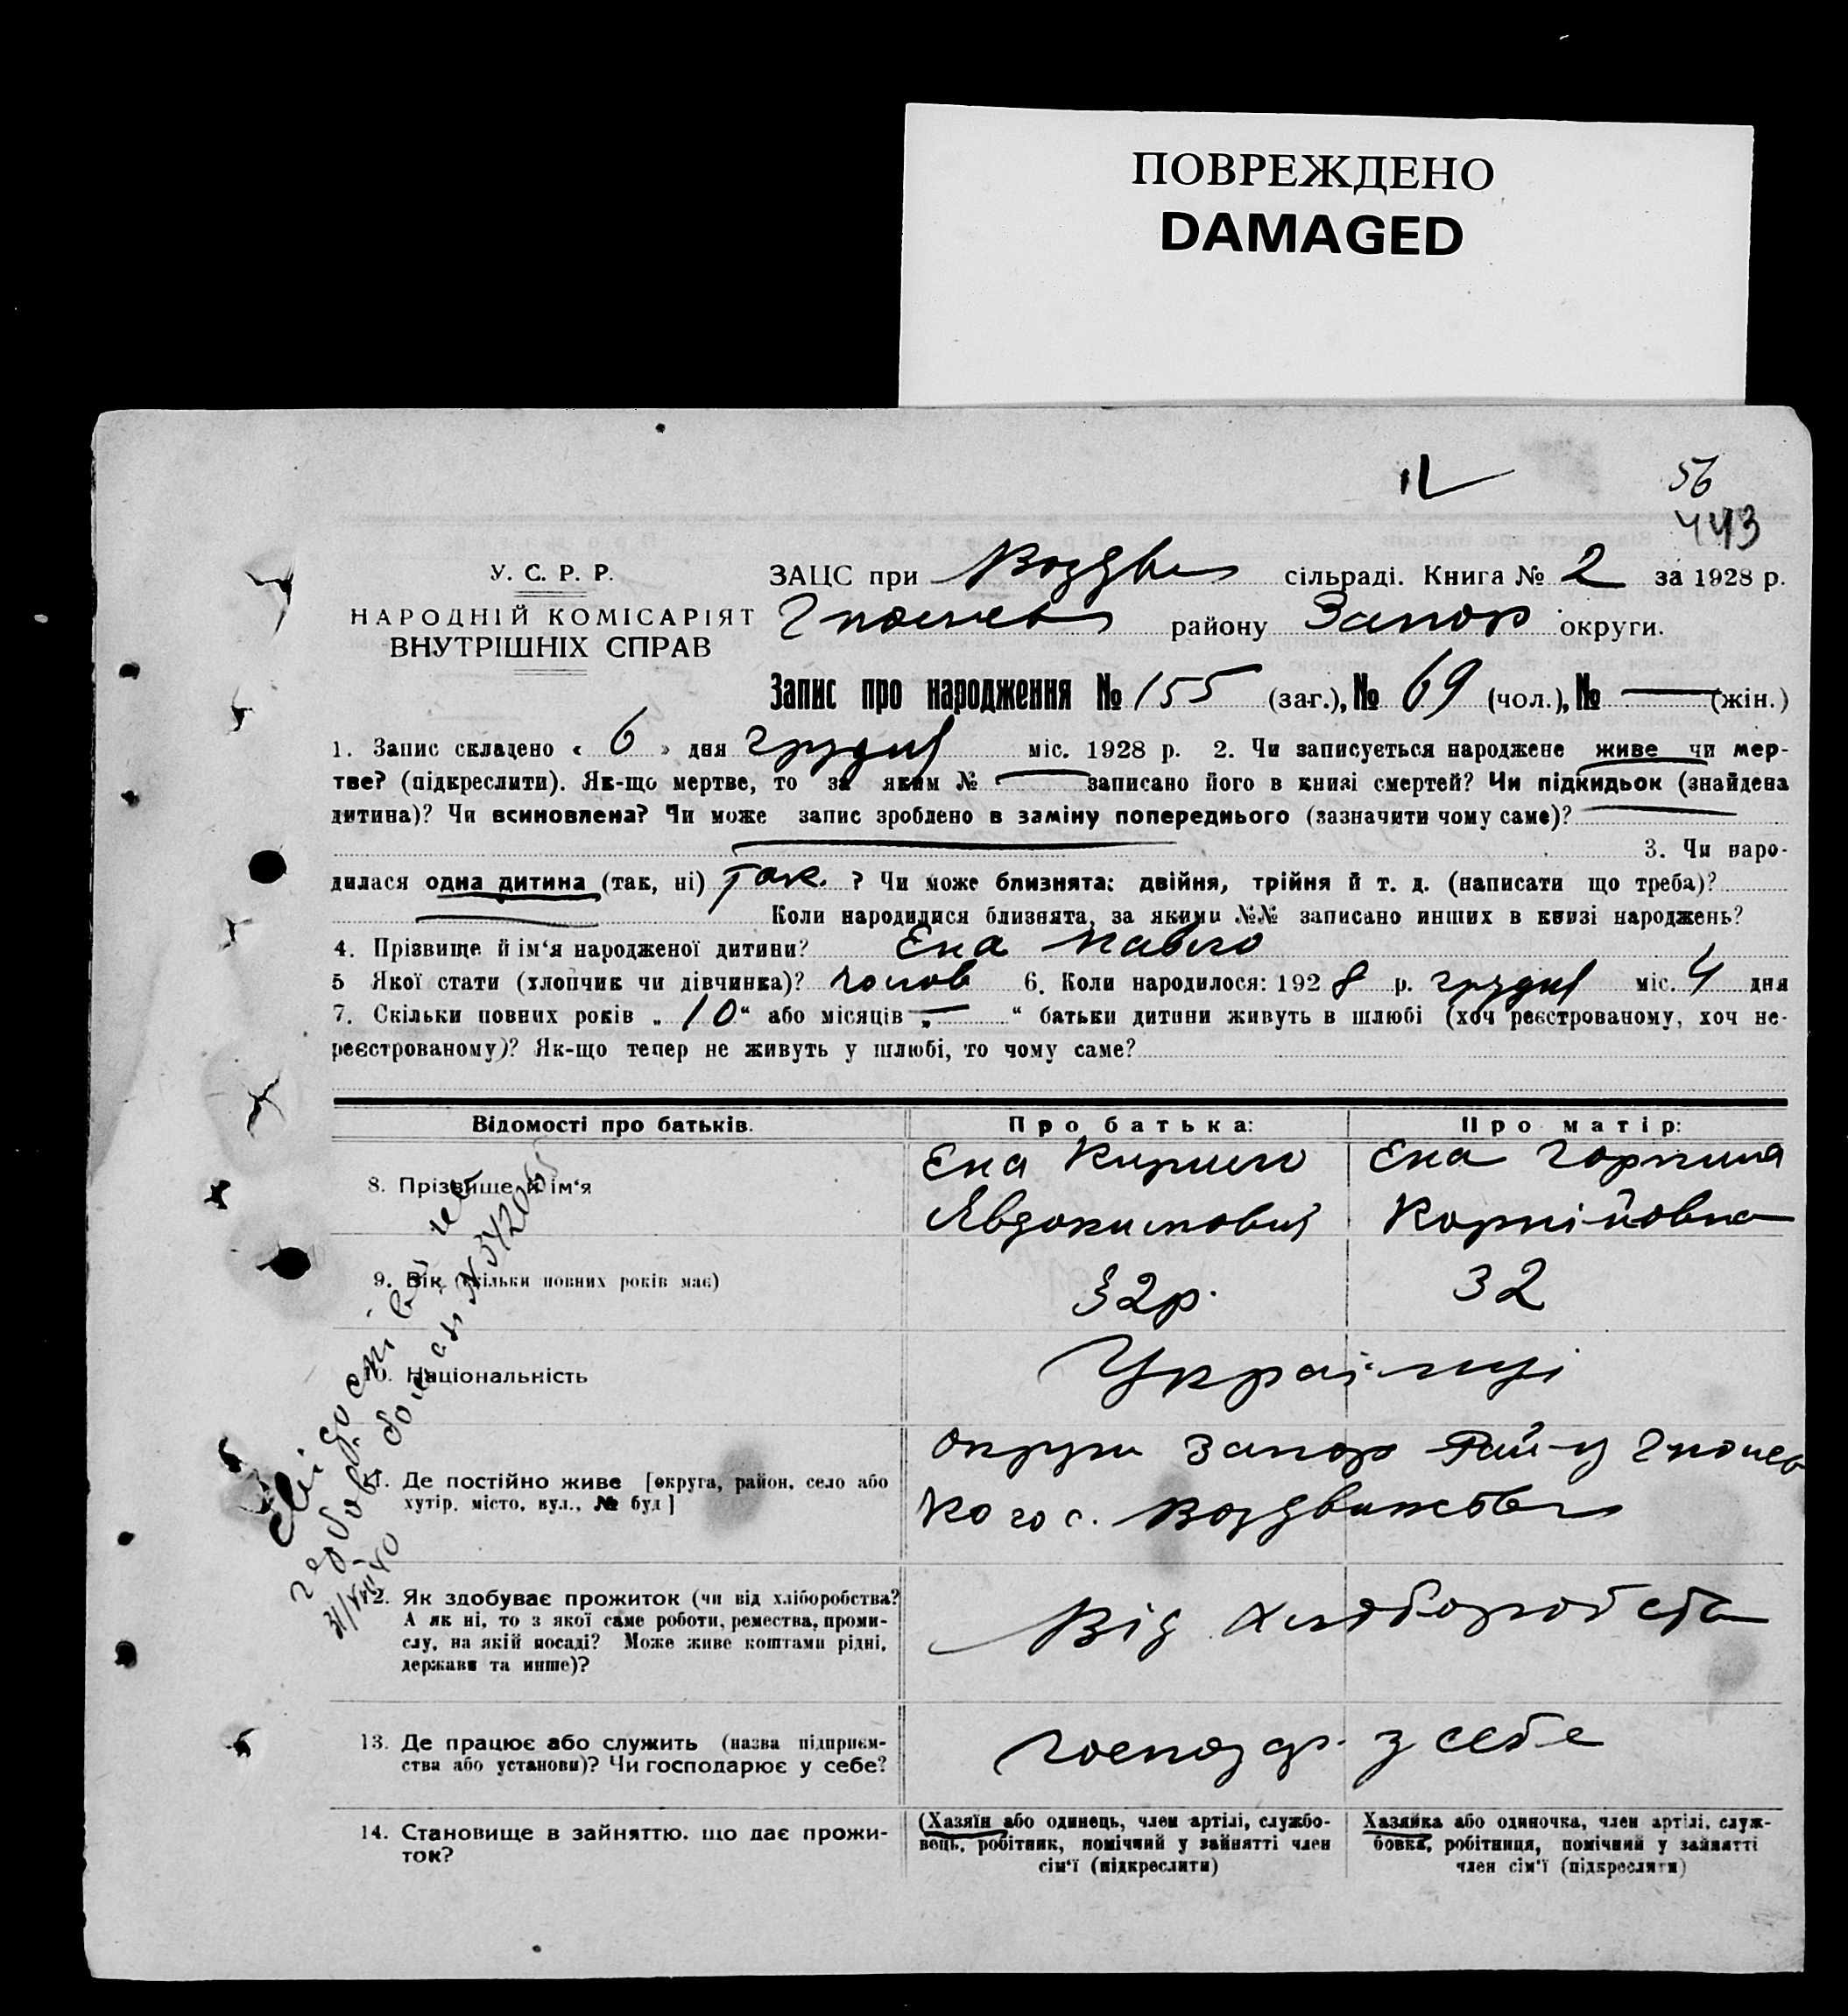 ПОВРЕЖДЕНО
DAMAGED
56
443
У. С. Р. Р.
НАРОДНІЙ КОМІСАРІЯТ
ВНУТРІШНІХ СПРАВ
ЗАЦС при Воздви сільраді. Книга № 2 за 1928 р.
району Запор округи.
Запис про народження № 155 (заг.), № 69 (чол.), № — (жін.)
1. Запис складено « 6 » дня грудня міс. 1928 р. 2. Чи записується народжене живе чи мер-
тве? (підкреслити). Як-що мертве, то за яким № — записано його в книзі смертей? Чи підкидьок (знайдена
дитина)? Чи всиновлена? Чи може запис зроблено в заміну попереднього (зазначити чому саме)? —
3. Чи наро-
дилася одна дитина (так, ні) так. ? Чи може близнята: двійня, трійня й т. д. (написати що треба)?
— Коли народилися близнята, за якими №№ записано инших в книзі народжень?
4. Прізвище й ім‘я народженої дитини? Ена Павло
5 Якої стати (хлопчик чи дівчинка)? чолов 6. Коли народилося: 1928 р. грудня міс. 4 дня
7. Скільки повних років „ 10 “ або місяців „ — “ батьки дитини живуть в шлюбі (хоч реєстрованому, хоч не-
реєстрованому)? Як-що тепер не живуть у шлюбі, то чому саме?
Відомості про батьків.
Про батька:
Про матір:
8. Прізвище й ім‘я
Ена Кирило
Явдокимович
Ена Горпина
Корнійовна
9. Вік (скільки повних років має)
32р.
32
10. Національність
Українці
11. Де постійно живе [округа, район, село або
хутір, місто, вул., № буд]
округи Запор Рай-у
кого с.
12. Як здобуває прожиток (чи від хліборобства?
А як ні, то з якої саме роботи, ремества, проми-
слу, на якій посаді? Може живе коштами рідні,
держави та инше)?
Від хліборобства
13. Де працює або служить (назва підприєм-
ства або установи)? Чи господарює у себе?
господар. у себе
14. Становище в зайняттю, що дає прожи-
ток?
(Хазяїн або одинець, член артілі, службо-
вець, робітник, помічний у зайнятті член
сім‘ї (підкреслити)
Хазяйка або одиночка, член артілі, служ-
бовка, робітниця, помічний у зайнятті
член сім‘ї (підкреслити)